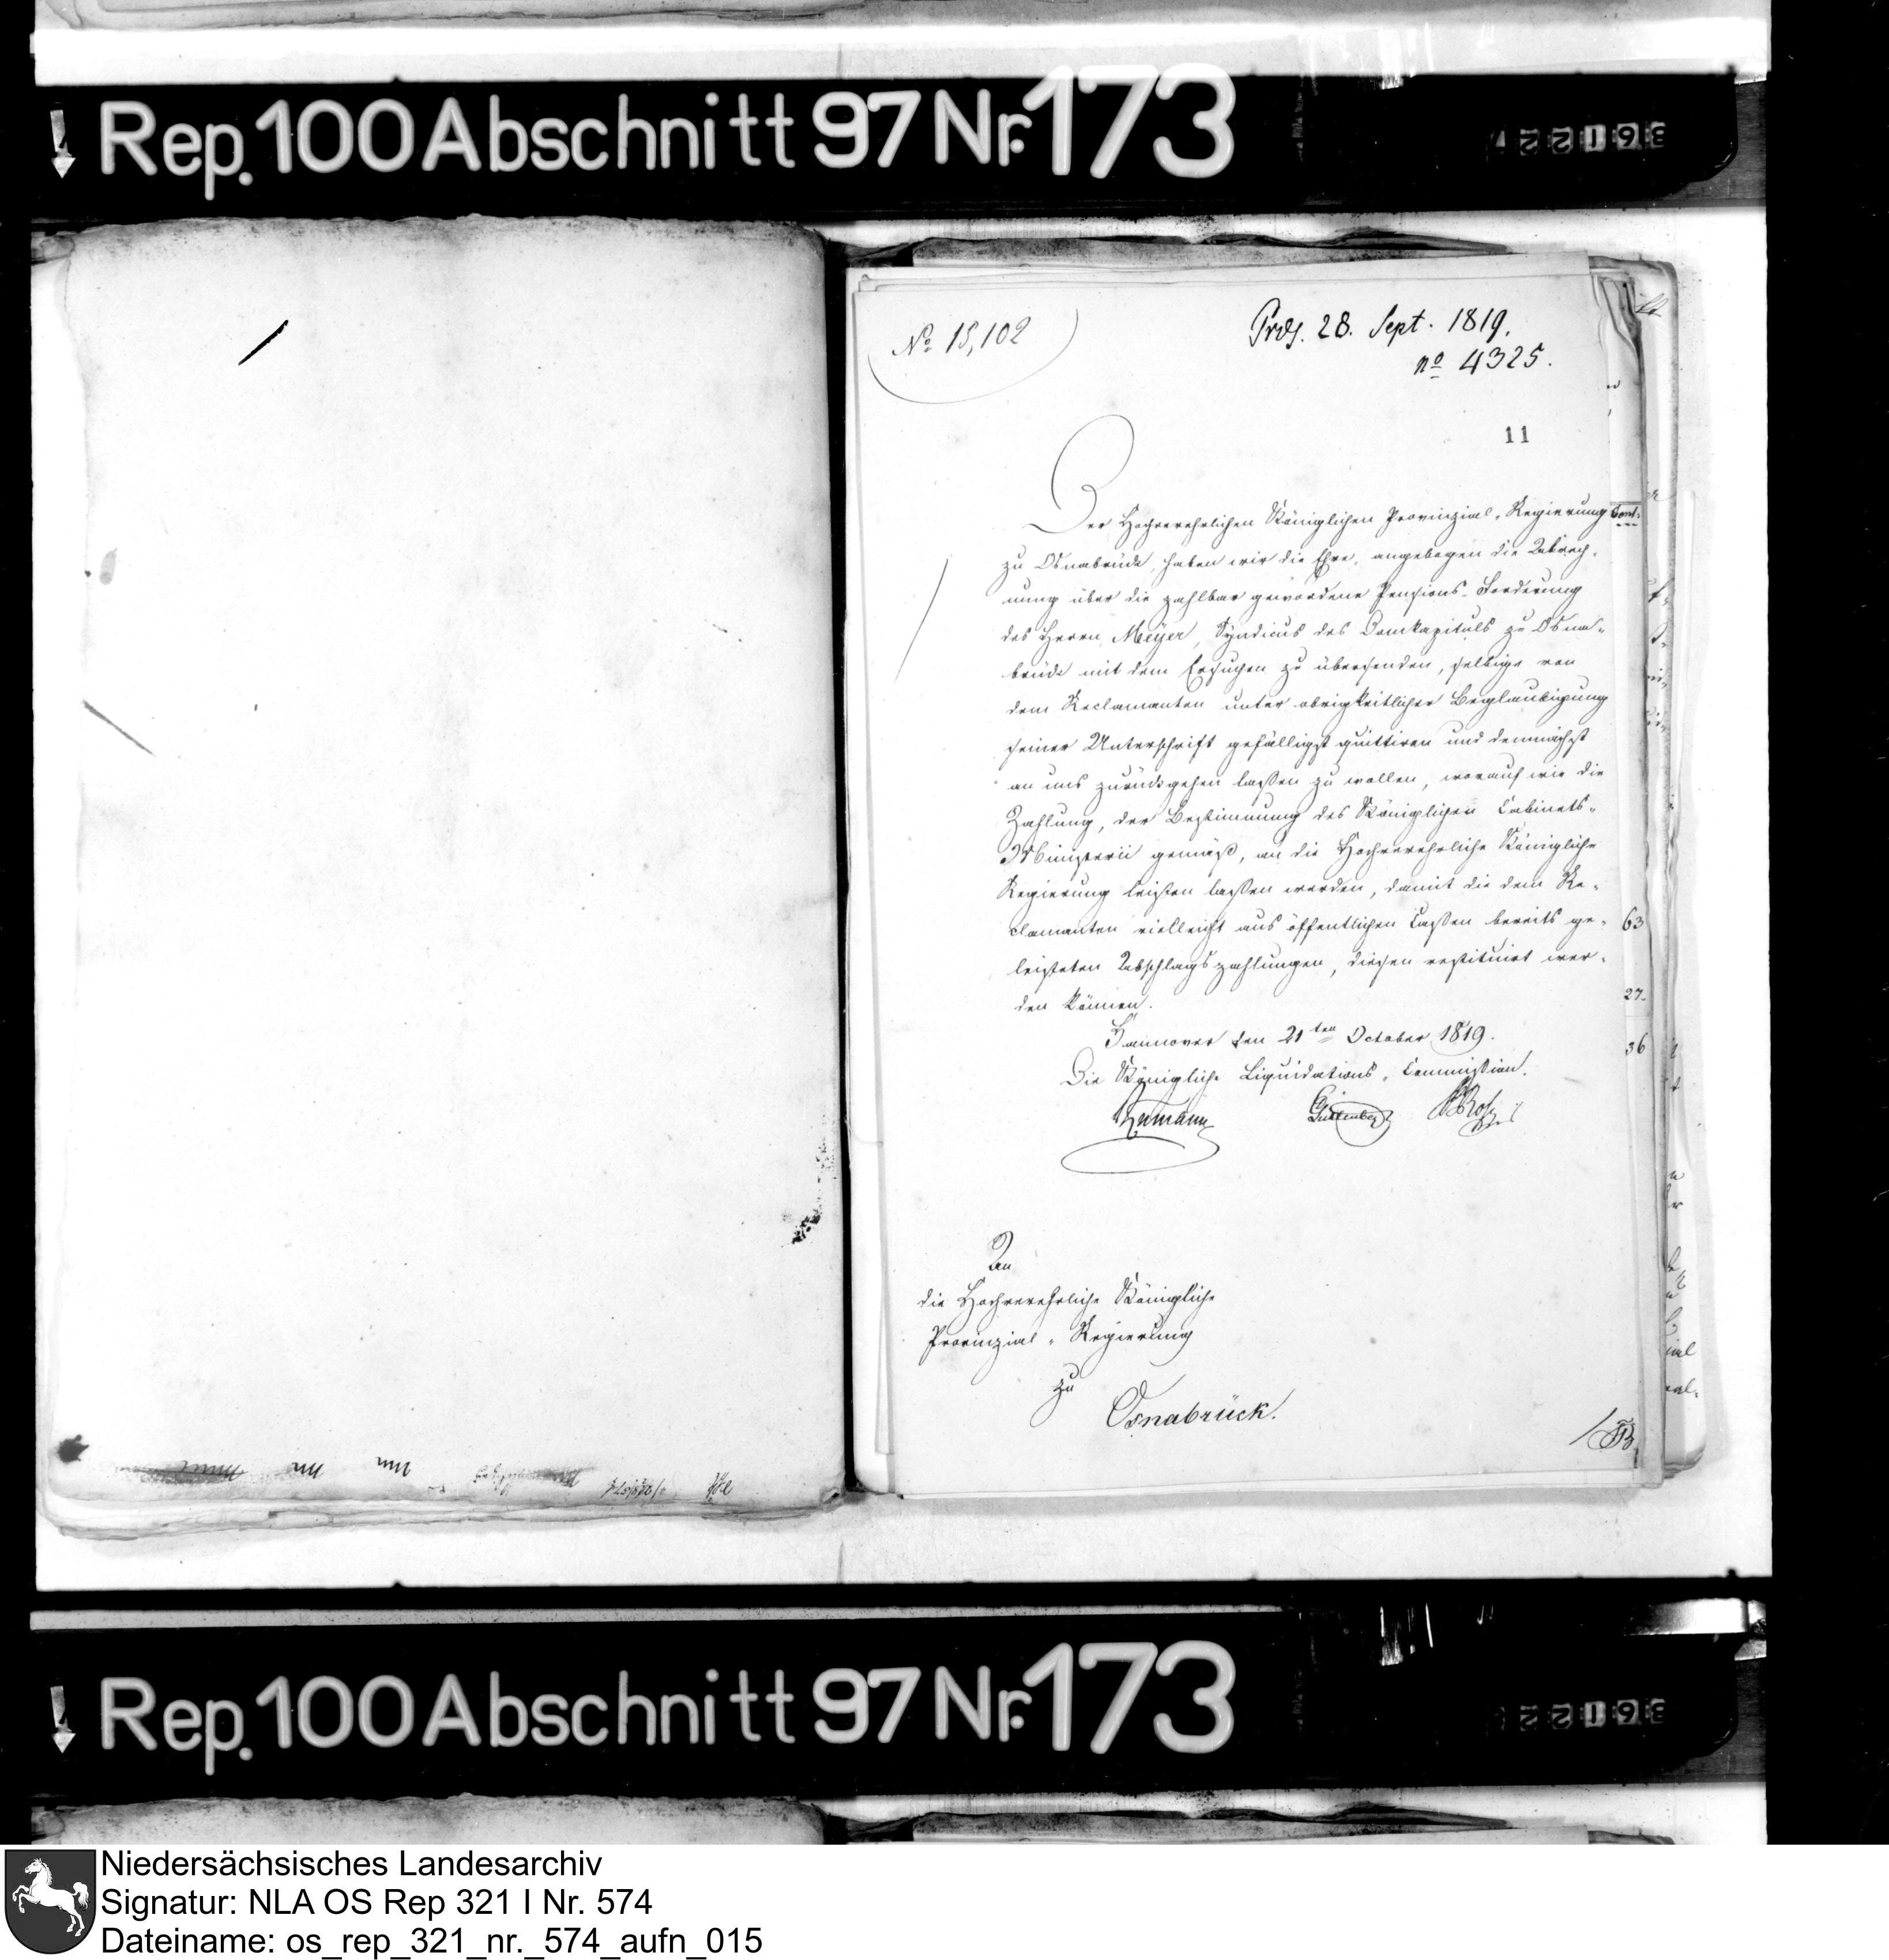 Rep. 100 Abschnitt 97 Nr. 173
No 18,102
Præs. 28. Sept. 1819.
no 4325.
11
Der Hochverehrlichen Königlichen Provinzial-Regierung
zu Osnabrück, haben wir die Ehre, angebogen die Abrech-
nung über die zahlbar gewordene Pensions-Forderung
des Herrn Meyer, Syndicus des Domkapituls zu Osna-
brück mit dem Ersuchen zu übersenden, selbige von
dem Reclamanten unter obrigkeitlicher Beglaubigung
seiner Unterschrift gefälligst quittiren und demnächst
an uns zurückgehen laßen zu wollen, worauf wir die
Zahlung, der Bestimmung des Königlichen Cabinets-
Ministerii gemäß, an die Hochverehrliche Königliche
Regierung leisten laßen werden, damit die dem Re-
clamanten vielleicht aus öffentlichen Caßen bereits ge-
leisteten Abschlagszahlungen, diesen restituirt wer-
den können.
Hannover den 21ten October 1819.
Die Königliche Liquidations-Commißion.
63
27.
36
An
die Hochverehrliche Königliche
Provinzial-Regierung
zu
Osnabrück.
Rep. 100 Abschnitt 97 Nr. 173
Niedersächsisches Landesarchiv
Signatur: NLA OS Rep 321 I Nr. 574
Dateiname: os_rep_321_nr._574_aufn_015